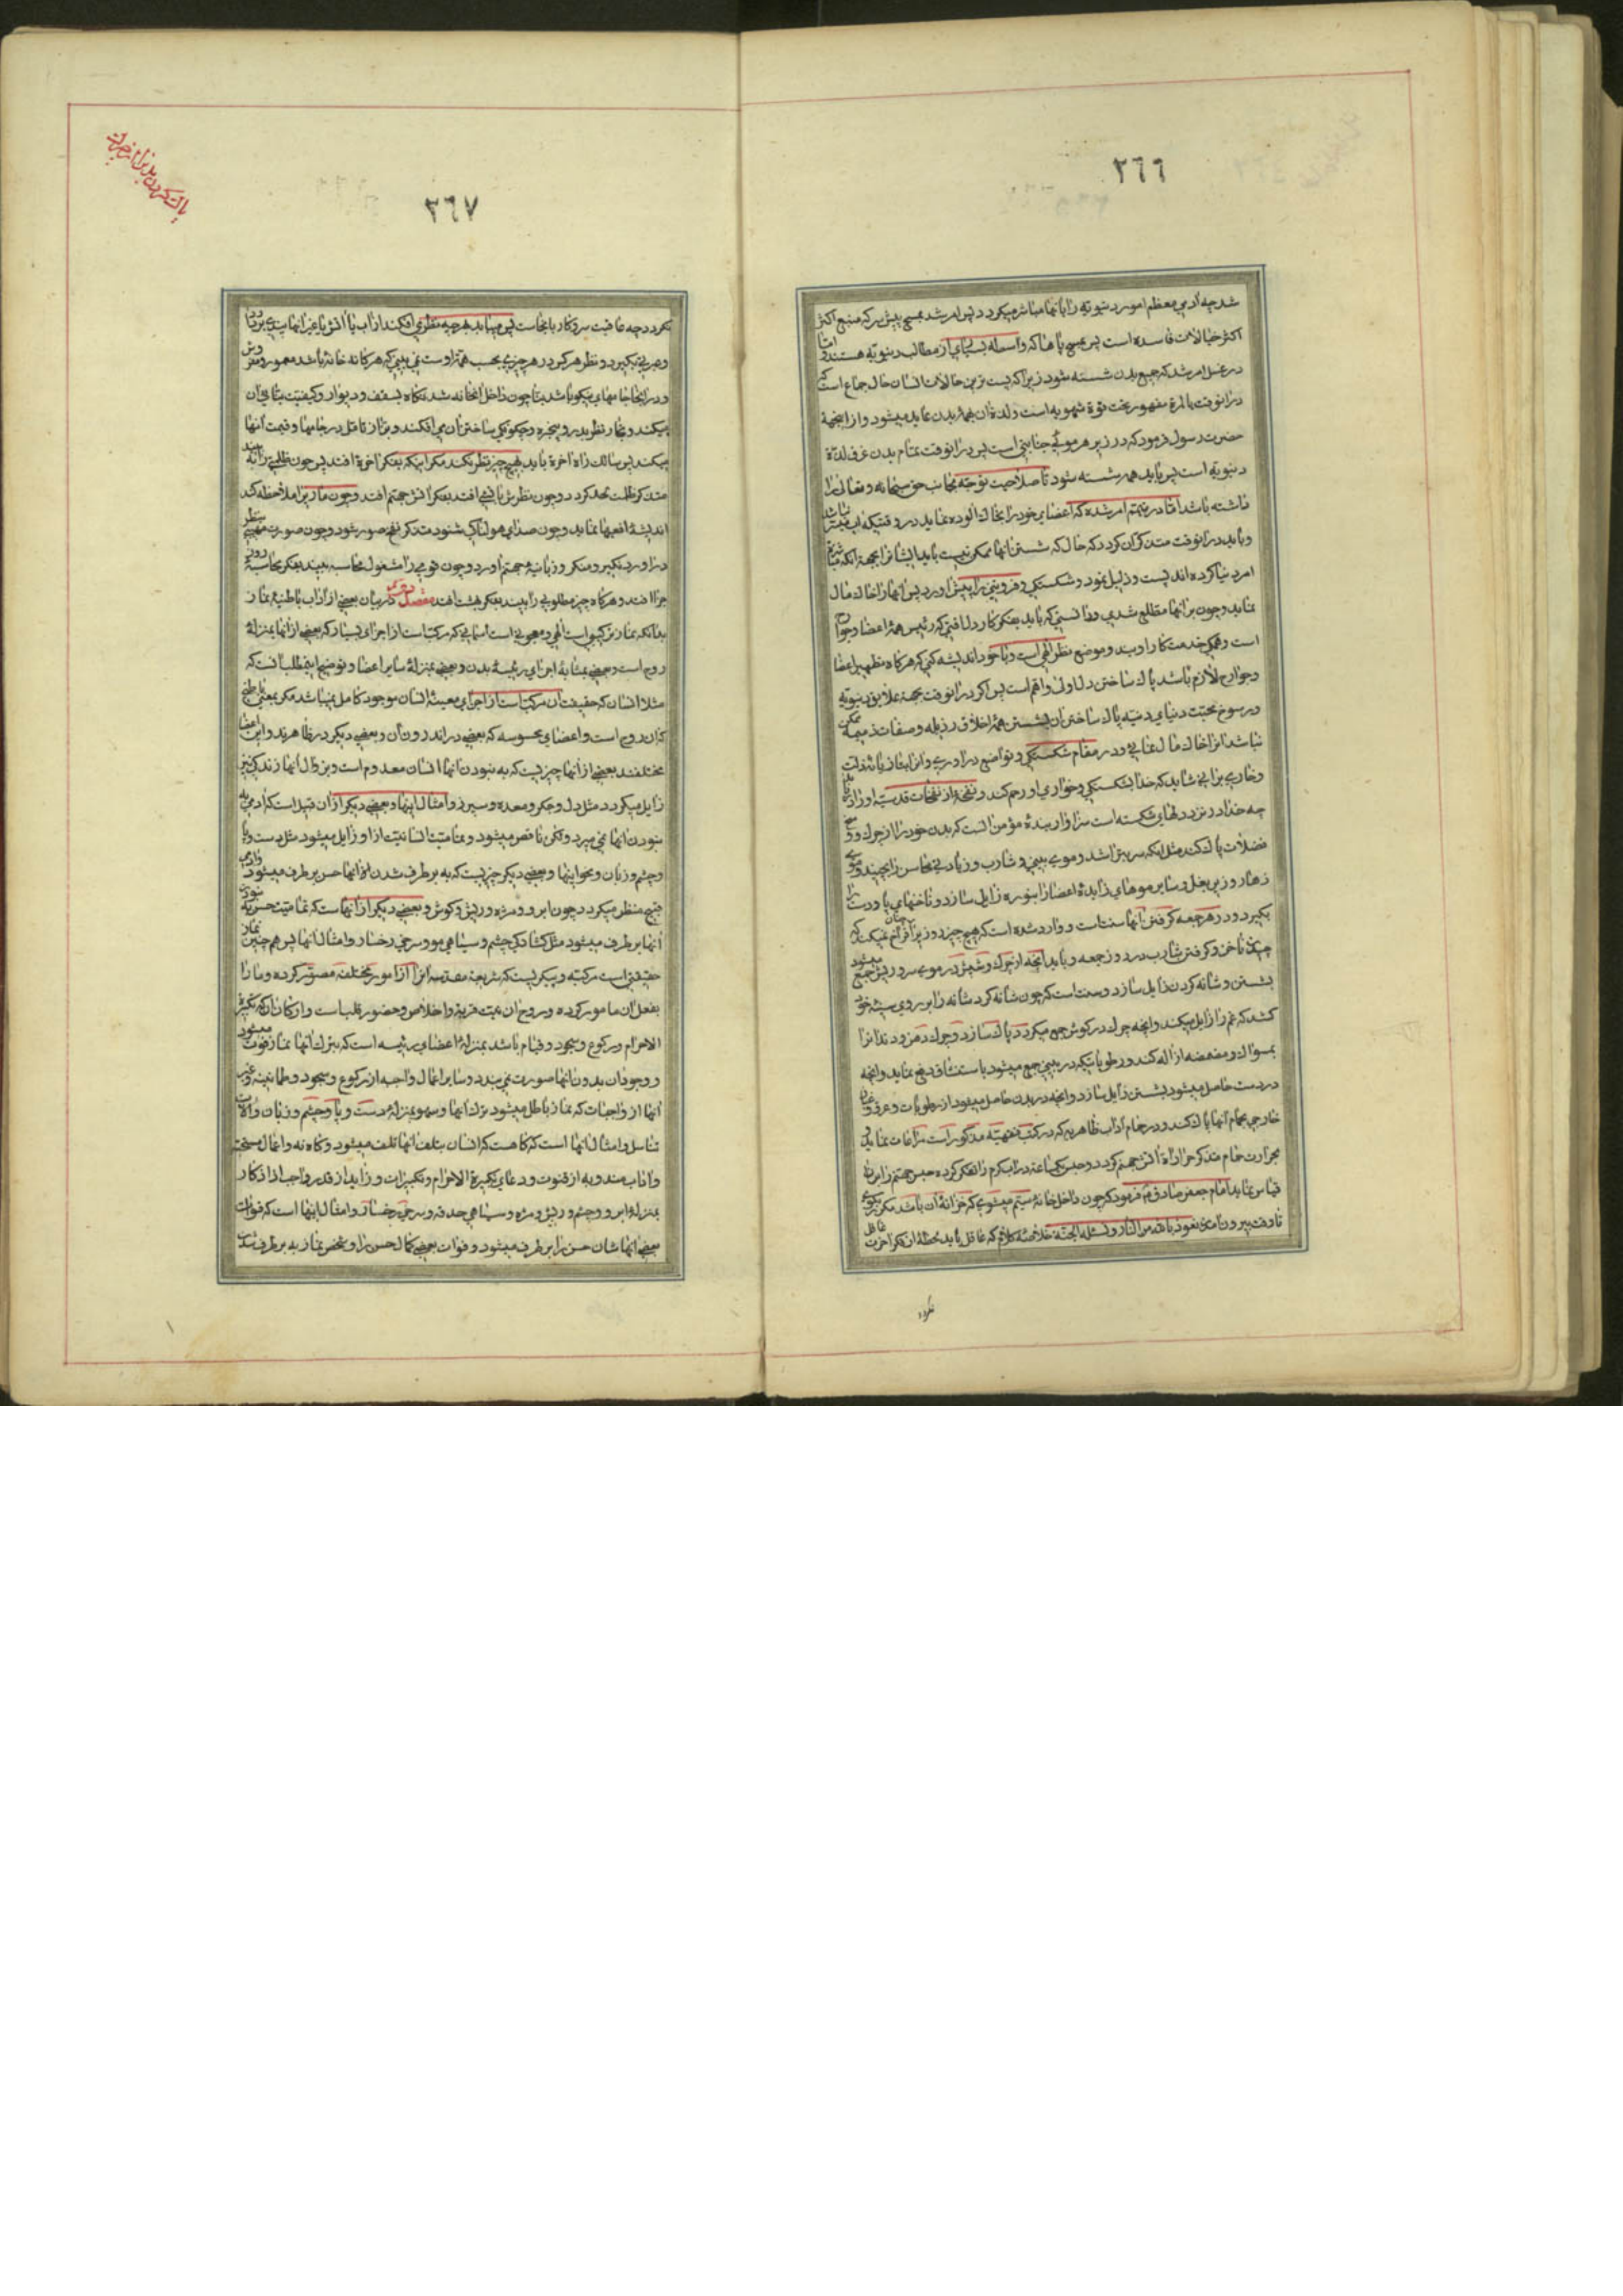 ٢٦٦
شد چه آدمی معظم امور دنیویه را با آنها مباشر میگردد پس امر شد بمسح پیش سر که منبع اکثر
اکثر خیالات فاسده است پس بمسح پاها که واسطه بسیاری از مطالب دنیویه هستند و اما
در غسل امر شد که جمیع بدن شسته شود زیرا که پست ترین حالات انسان حال جماع است که
در آنوقت بالمره مقهور تحت قوة شهویه است و لذة آن بهمه بدن عاید میشود و از اینجهة
حضرت رسول فرمود که در زیر هر موئی جنابتی است پس در آنوقت تمام بدن غرق لذة
دنیویه است پس باید همه شسته شود تا صلاحیت توجه بجانب حق سبحانه و تعالی را
داشته باشد اما در تیمم امر شده که اعضای خود را بخاك آلوده نماید در وقتیکه آب میسر نباشد
و باید در آنوقت متذکر آن گردد که حال که شستن آنها ممکن نیست باید ایشانرا بجهة آنکه
امر دنیا کرده اند پست و ذلیل نمود و شکستگی و فروتنی را پیش آورد پس آنها را خاك مال
نماید و چون بر آنها مطلع شدی و دانستی که باید بفکر کار دل افتی که رئیس همه اعضا و جوارح
است و همگی خدمتکار اویند و موضع نظر الهی است و با خود اندیشه کنی که هرگاه تطهیر اعضا
و جوارح لازم باشد پاك ساختن دل اولی و اهم است پس اگر در آنوقت بجهة علایق دنیویه
و رسوخ محبت دنیای دنیه پاك ساختن آن بشستن همه اخلاق رذیله و صفات ذمیمه ممکن
نباشد آنرا خاك مال نمائی و در مقام شکستگی و تواضع درآوری و آنرا بتازیانه ذلت
و خاری برانی شاید که خدا بشکستگی و خواری او رحم کند و نفحه از نفحات قدسیه او را
چه خدا در نزد دلهای شکسته است سزاوار بنده مؤمن آنست که بدن خود را از چرك و
فضلات پاك کند مثل اینکه سر بتراشد و موی بینی و شارب و زیادتی محاسن را بچیند و موی
زهار و زیر بغل و سایر موهای زایده اعضا را بنوره زایل سازد و ناخنهای پا و دست را
بگیرد و در هر جمعه گرفتن آنها سنت است و وارد شده است که هیچ چیز روزی را فراخ نمیکند چنانکه
چیدن ناخن و گرفتن شارب در روز جمعه و باید آنچه از چرك و شپش در موی سر و ریش جمع میشود
بشستن و شانه کردن زایل سازد و سنت است که چون شانه کرد شانه را بر روی سینه خود
کشد که غم را زایل میکند و آنچه چرك در گوش جمع میگردد پاك سازد و چرك دهن و دندانرا
بمسواك و مضمضه ازاله کند و رطوباتیکه در بینی جمع میشود باستنشاق دفع نماید و آنچه
در دست حاصل میشود بشستن زایل سازد و آنچه در بدن حاصل میشود از رطوبات و عرق و غبار
خارجی بحمام آنها پاك کند و در حمام آداب ظاهریه که در کتب فقهیه مذکور است مراعات نماید
بحرارت حمام متذکر حرارة آتش جهنم گردد و حبس یکساعته در آب گرم را تفکر کرده حبس جهنم را بر آن
قیاس نماید امام جعفر صادق ع فرمود که چون داخل خانه سیم میشوی که خزانه آن باشد مکرر بگوی
تا وقت بیرون آمدن نعوذ بالله من النار و نسئله الجنة خلاصه کلام که عاقل باید لحظه از فکر آخرت غافل
نگردد
٢٦٧
پاك کردن بدن از چرك
نگردد چه عاقبت سر و کار با آنجاست پس میباید بهر چه نظر می افکند از آب یا آتش یا غیر آنها پندی بردارد
و عبرتی بگیرد و نظر هر کس در هر چیزی بحسب همة اوست نمی بینی که هرگاه خانه باشد معمور و مفروش
و در آنجا جامهای نیکو باشد بنا چون داخل آنخانه شد نگاه بسقف و دیوار و کیفیت بنای آن
میکند و نجار نظر بدر و پنجره و چگونگی ساختن آن می افکند و بزاز تامل در جامها و قیمت آنها
میکند پس سالك راه آخرة باید بهیچ چیز نظر نکند مگر اینکه بفکر آخرة افتد پس چون ظلمتی را بیند
متذکر ظلمت لحد گردد و چون نظرش بآتش افتد بفکر آتش جهنم افتد و چون مار را ملاحظه کند
اندیشه افعیها نماید و چون صدای هولناکی شنود متذکر نفخ صور شود و چون صورت مهیبی بنظر
درآورد بنکیر و منکر و زبانیه جهنم آورد و چون قومی را مشغول محاسبه بیند بفکر محاسبه روز
جزا افتد و هرگاه چیز مطلوبی را بیند بفکر بهشت افتد مقصد در بیان بعضی از آداب باطنیه نماز
بدانکه نماز ترکیبی است الهی و معجونی است آسمانی که مرکب است از اجزای بسیار که بعضی از آنها بمنزله
روح است و بعضی بمثابه اجزای رئیسه بدن و بعضی بمنزله سایر اعضا و توضیح اینمطلب آنست که
مثلا انسان که حقیقت آن مرکب است از اجزای معینه انسان موجود کامل نمیباشد مگر بمعنی باطنی
که آن روح است و اعضای محسوسه که بعضی در اندرون آن و بعضی دیگر در ظاهرند و این اعضا
مختلفند بعضی از آنها چیزیست که به نبودن آنها انسان معدوم است و بزوال آنها زندگی نیز
زایل میگردد مثل دل و جگر و معده و سپرز و امثال اینها و بعضی دیگر از آن قبیل است که آدمی به
نبودن آنها نمی میرد ولکن ناقص میشود و تمامیت انسانیت از او زایل میشود مثل دست و پا
و چشم و زبان و نحو اینها و بعضی دیگر چیزیست که به برطرف شدن آنها حسن برطرف میشود و آدمی
قبیح منظر میگردد چون ابرو و مژه و ریش و گوش و بعضی دیگر از آنهاست که تمامیت حسن به نبودن
آنها برطرف میشود مثل گشادگی چشم و سیاهی مو و سرخی رخسار و امثال آنها پس همچنین نماز
حقیقتی است مرکبه و پیکریست که شریعة مقدسه آنرا از امور مختلفه مصور کرده و ما را
بفعل آن مامور کرده و روح آن نیت قربة و اخلاص و حضور قلب است و ارکان آن که تکبیرة
الاحرام و رکوع و سجود و قیام باشد بمنزله اعضای رئیسه است که بترك آنها نماز فوت میشود
و وجود آن بدون آنها صورت نمی بندد و سایر اعمال واجبه از رکوع و سجود و طمانینه و غیر
آنها از واجبات که نماز باطل میشود بترك آنها و سهو بمنزله دست و پا و چشم و زبان و آلات
تناسل و امثال آنها است که گاهست که انسان بتلف آنها تلف میشود و گاه نه و اعمال مستحبه
و آداب مندوبه از قنوت و دعای تکبیرة الاحرام و تکبیرات و زاید از قدر واجب از اذکار
بمنزله ابرو و چشم و ریش و مژه و سیاهی حدقه و سرخی رخسار و امثال اینها است که فوات
بعضی آنها شان حسن را برطرف میشود و فوات بعضی کمال حسن را و شخص نماز به برطرف شدن